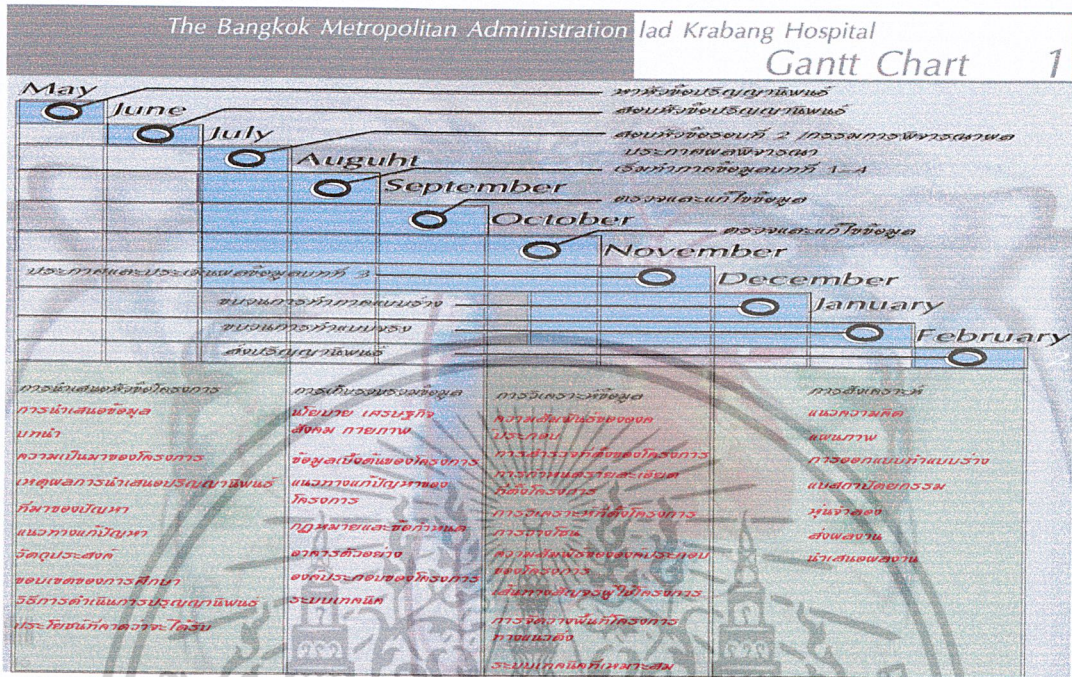 The Bangkok Metropolitan Administration lad Krabang Hospital
Gantt Chart 1
May
หาหัวข้อปริญญานิพนธ์
June
สอบหัวข้อปริญญานิพนธ์
July
สอบหัวข้อรอบที่ 2 /กรรมการพิจารณาผล
ประกาศผลพิจารณา
Auguht
เริ่มทำภาคข้อมูลบทที่ 1-4
September
ตรวจและแก้ไขข้อมูล
October
ตรวจและแก้ไขข้อมูล
November
ประกาศและประเมินผลข้อมูลบทที่ 3
December
ขบวนการทำภาคแบบร่าง
January
ขบวนการทำแบบจริง
February
ส่งปริญญานิพนธ์
การนำเสนอหัวข้อโครงการ
การนำเสนอข้อมูล
บทนำ
ความเป็นมาของโครงการ
เหตุผลการนำเสนอปริญญานิพนธ์
ที่มาของปัญหา
แนวทางแก้ปัญหา
วัตถุประสงค์
ขอบเขตของการศึกษา
วิธีการดำเนินการปรุญญานิพนธ์
ประโยชน์ที่คาดว่าจะได้รับ
การเก็บรวบรวมข้อมูล
นโยบาย เศรษฐกิจ
สังคม กายภาพ
ข้อมูลเบื้องต้นของโครงการ
แนวทางแก้ปัญหาของ
โครงการ
กฎหมายและข้อกำหนด
อาคารตัวอย่าง
องค์ประกอบของโครงการ
ระบบเทคนิค
การวิเคราะห์ข้อมูล
ความสัมพันธ์ขององค์
ประกอบ
การสำรวจที่ตั้งของโครงการ
การกำหนดรายละเอียด
ที่ตั้งโครงการ
การวิเคราะห์ที่ตั้งโครงการ
การวางโซน
ความสัมพันธ์ขององค์ประกอบ
ของโครงการ
เส้นทางสัญจรผู้ใช้โครงการ
การจัดวางพื้นที่โครงการ
ทางแนวตั้ง
ระบบเทคนิคที่เหมาะสม
การสังเคราะห์
แนวความคิด
แผนภาพ
การออกแบบทำแบบร่าง
แบสถาปัตยกรรม
หุ่นจำลอง
ส่งผลงาน
นำเสนอผลงาน